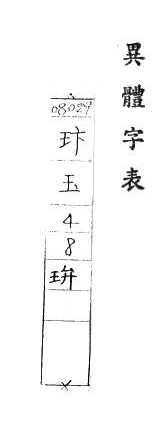 異體字表
08029
玣
玉
4
8
琾